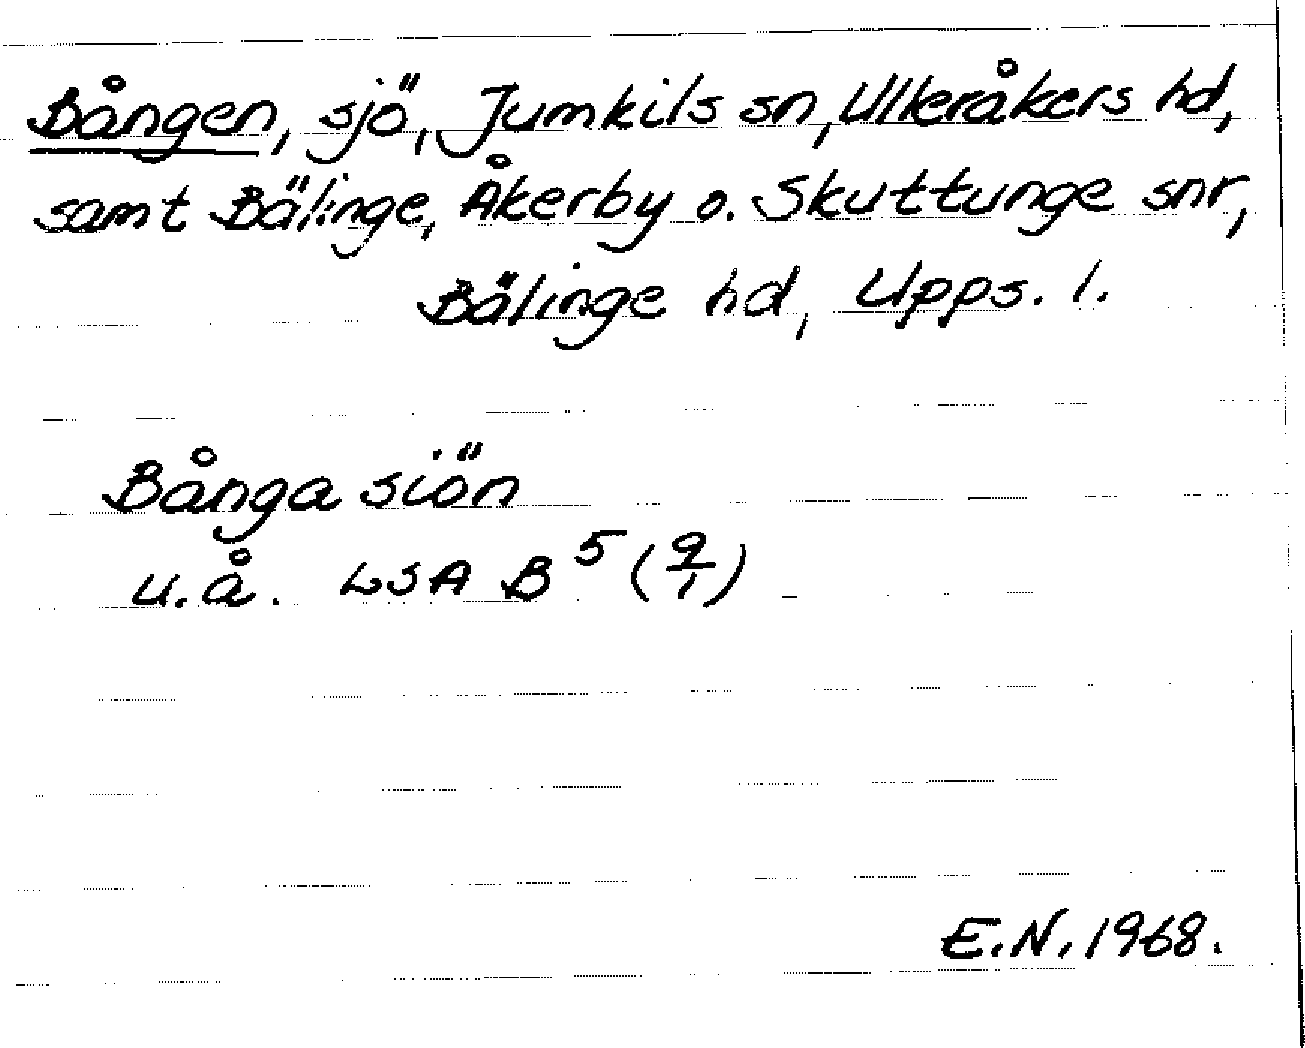 Bången, sjö, Jumkils sn, Ulleråkers hd,
samt Bälinge, Åkerby o. Skuttunge snr,
Bälinge hd, Upps. l.
Bånga siön
u.å. LSA B⁵ (9/1)
E.N. 1968.